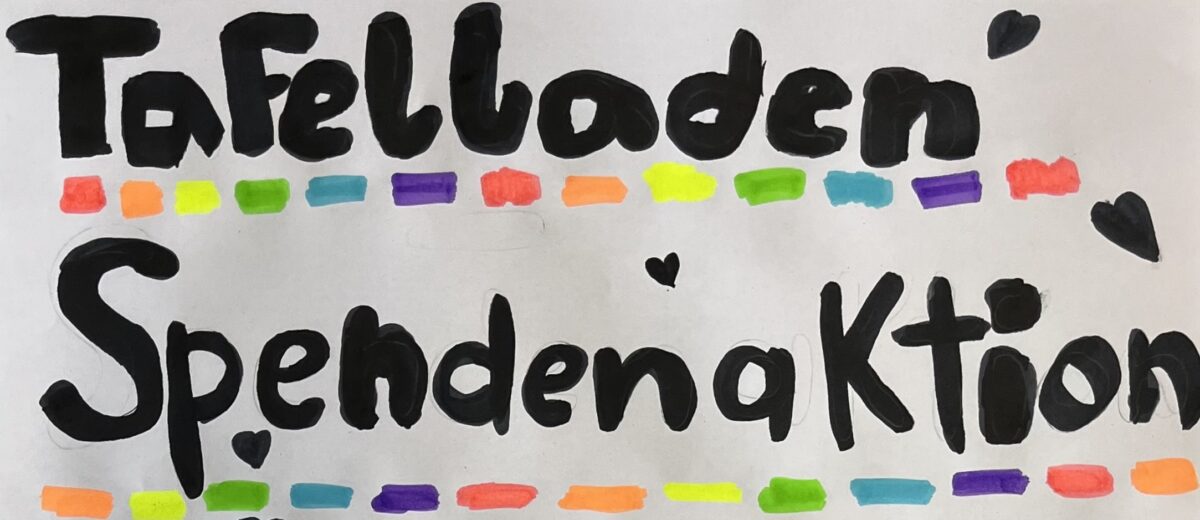 Tafelladen
Spendenaktion